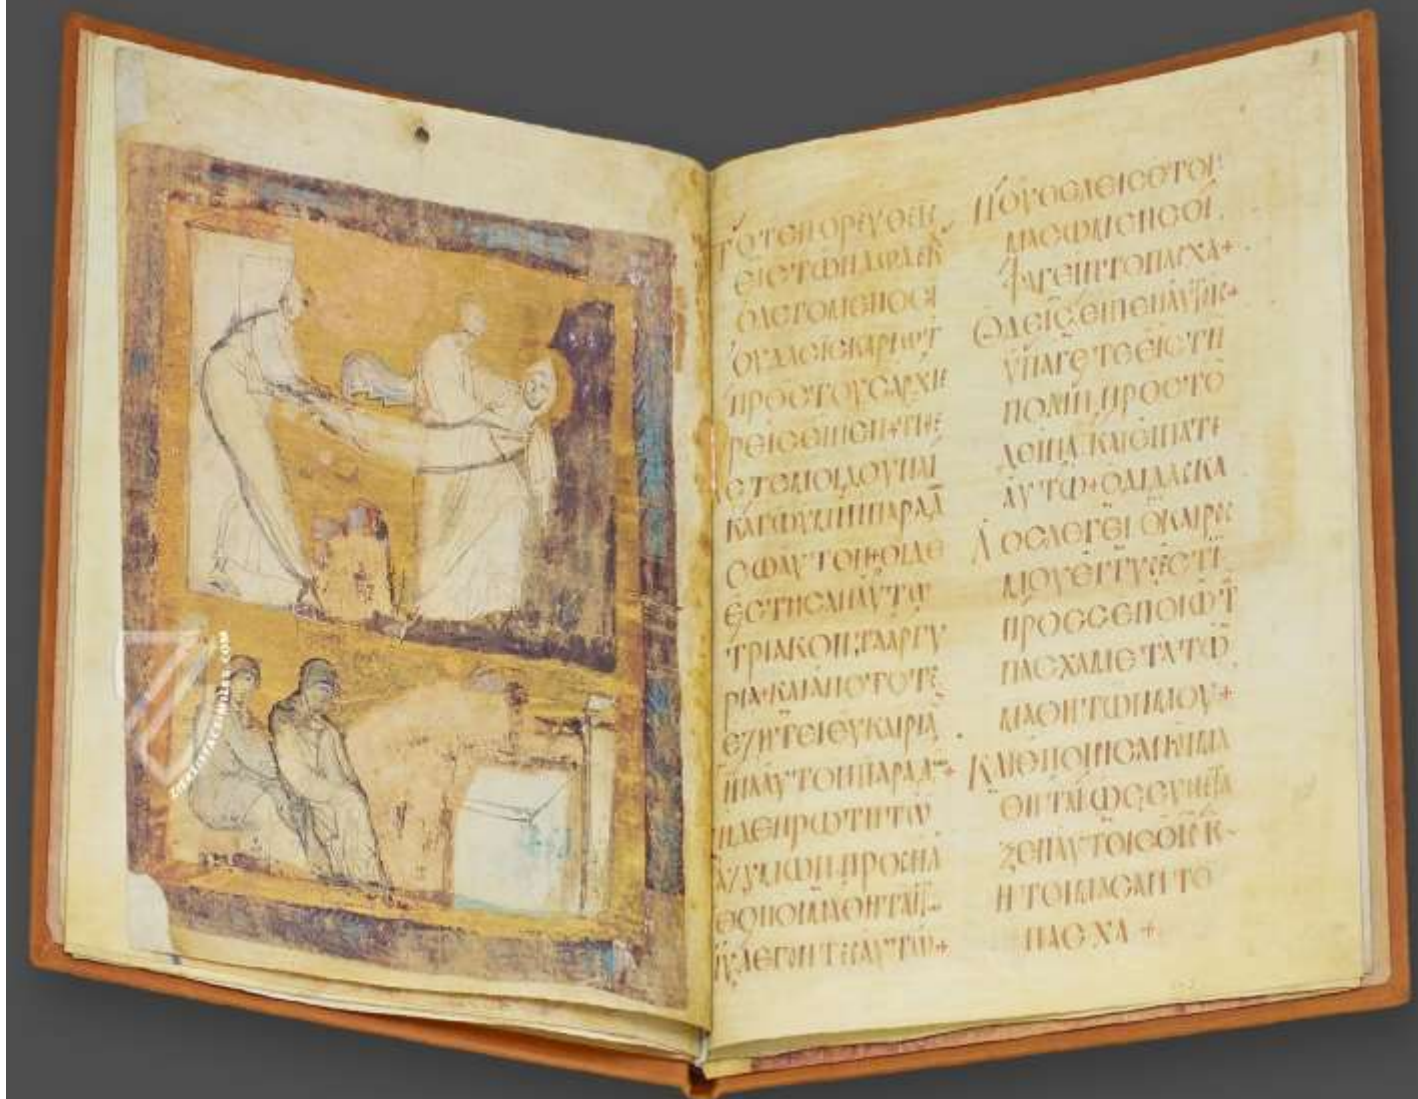 ΤΟΤΕΠΟΡΕΥΘΕΙC
ΕΙCΤΩΝΔΩΔΕΚ
ΟΛΕΓΟΜΕΝΟCΙ
ΟΥΔΑCΙCΚΑΡΙΩΤ
ΠΡΟCΤΟΥCΑΡΧΙΕ
ΡΕΙCΕΙΠΕΝ+ΤΙΘΕ
ΕΤΕΜΟΙΔΟΥΝΑΙ
ΚΑΓΩΥΜΙΝΠΑΡΑΔ
CΩΑΥΤΟΝ+ΟΙΔΕ
ΕCΤΗCΑΝΑΥΤΩ
ΤΡΙΑΚΟΝΤΑΑΡΓΥ
ΡΙΑ+ΚΑΙΑΠΟΤΟΤΕ
ΕΖΗΤΕΙΕΥΚΑΙΡΙΑ
ΙΝΑΑΥΤΟΝΠΑΡΑΔ+
ΤΗΔΕΠΡΩΤΗΤΩ
ΑΖΥΜΩΝΠΡΟCΗΛ
ΘΟΝΟΙΜΑΘΗΤΑΙ
ΙΥΛΕΓΟΝΤΕCΑΥΤΩ+
ΠΟΥΘΕΛΕΙCΕΤΟΙ
ΜΑCΩΜΕΝCΟΙ
ΦΑΓΕΙΝΤΟΠΑCΧΑ+
ΟΔΕΙCΕΙΠΕΝΑΥΤΟΙC+
ΥΠΑΓΕΤΕΕΙCΤΗ
ΠΟΛΙΝΠΡΟCΤΟ
ΔΕΙΝΑΚΑΙΕΙΠΑΤΕ
ΑΥΤΩ+ΟΔΙΔΑCΚΑ
ΛΟCΛΕΓΕΙΟΚΑΙΡΟC
ΜΟΥΕΓΓΥCΕCΤΙ
ΠΡΟCCΕΠΟΙΩΤ
ΠΑCΧΑΜΕΤΑΤΩ
ΜΑΘΗΤΩΝΜΟΥ+
ΚΑΙΕΠΟΙΗCΑΝΟΙΜΑ
ΘΗΤΑΙΩCCΥΝΕΤΑ
ΞΕΝΑΥΤΟΙCΟΙCΚ
ΗΤΟΙΜΑCΑΝΤΟ
ΠΑCΧΑ+